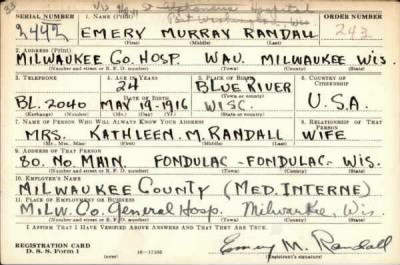 St. Alphonsus Hospital
Port Washington, Wis
SERIAL NUMBER 1. NAME (Print) ORDER NUMBER
2442 EMERY MURRAY RANDALL 243
(First) (Middle) (Last)
2. ADDRESS (Print)
MILWAUKEE CO. HOSP. WAU. MILWAUKEE WIS.
(Number and street or R. F. D. number) (Town) (County) (State)
3. TELEPHONE 4. AGE IN YEARS 5. PLACE OF BIRTH 6. COUNTRY OF CITIZENSHIP
24 BLUE RIVER
DATE OF BIRTH (Town or county)
BL. 2040 MAY-19-1916 WISC. U.S.A.
(Exchange) (Number) (Mo.) (Day) (Yr.) (State or country)
7. NAME OF PERSON WHO WILL ALWAYS KNOW YOUR ADDRESS 8. RELATIONSHIP OF THAT PERSON
MRS. KATHLEEN M. RANDALL WIFE
(Mr., Mrs., Miss) (First) (Middle) (Last)
9. ADDRESS OF THAT PERSON
80. NO. MAIN. FONDULAC - FONDULAC - WIS.
(Number and street or R. F. D. number) (Town) (County) (State)
10. EMPLOYER'S NAME
MILWAUKEE COUNTY (MED. INTERNE)
11. PLACE OF EMPLOYMENT OR BUSINESS
Milw. Co. General Hosp. Milwaukee, Wis
(Number and street or R. F. D. number) (Town) (County) (State)
I AFFIRM THAT I HAVE VERIFIED ABOVE ANSWERS AND THAT THEY ARE TRUE.
REGISTRATION CARD
D. S. S. Form 1 16-17105 Emery M. Randall
(Registrant's signature)